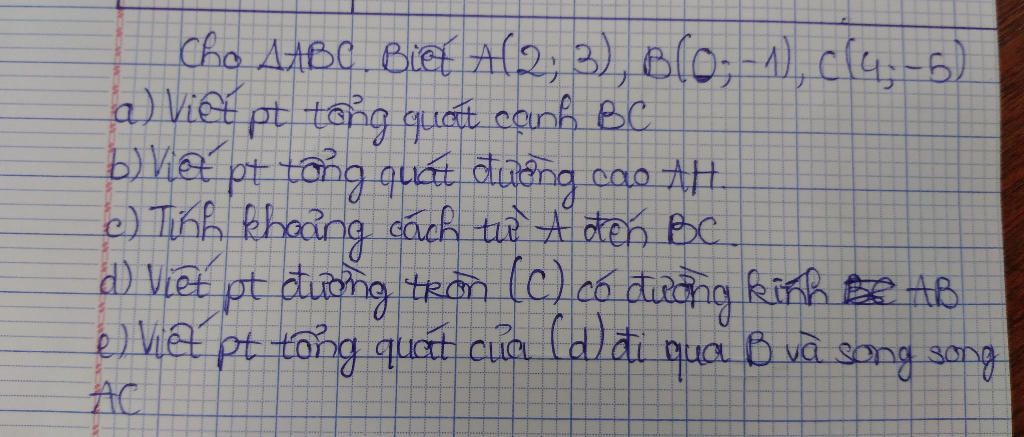 Cho ΔABC. Biết A(2; 3), B(0; -1), C(4; -5)
a) Viết pt tổng quát cạnh BC
b) Viết pt tổng quát đường cao AH.
c) Tính khoảng cách từ A đến BC.
d) Viết pt đường tròn (C) có đường kính AB
e) Viết pt tổng quát của (d) đi qua B và song song
AC